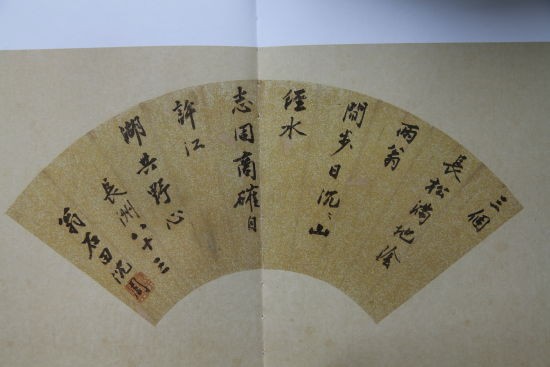 三個
長松滿地陰
兩翁
閒步日沉〻山
經水
志同商確自
許江
湖共野心
長洲八十三
翁石田沈周